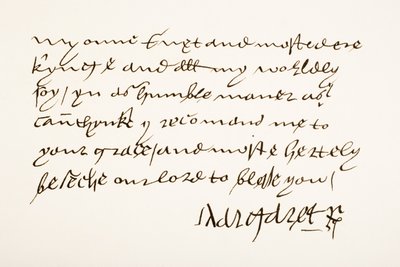 my oune suet and most dere
kynge and all my worldly
Joy / yn as humble maner as I
can thynke I recomand me to
your grace / and most hertely
beseche our lord to blesse you /
Margaret R